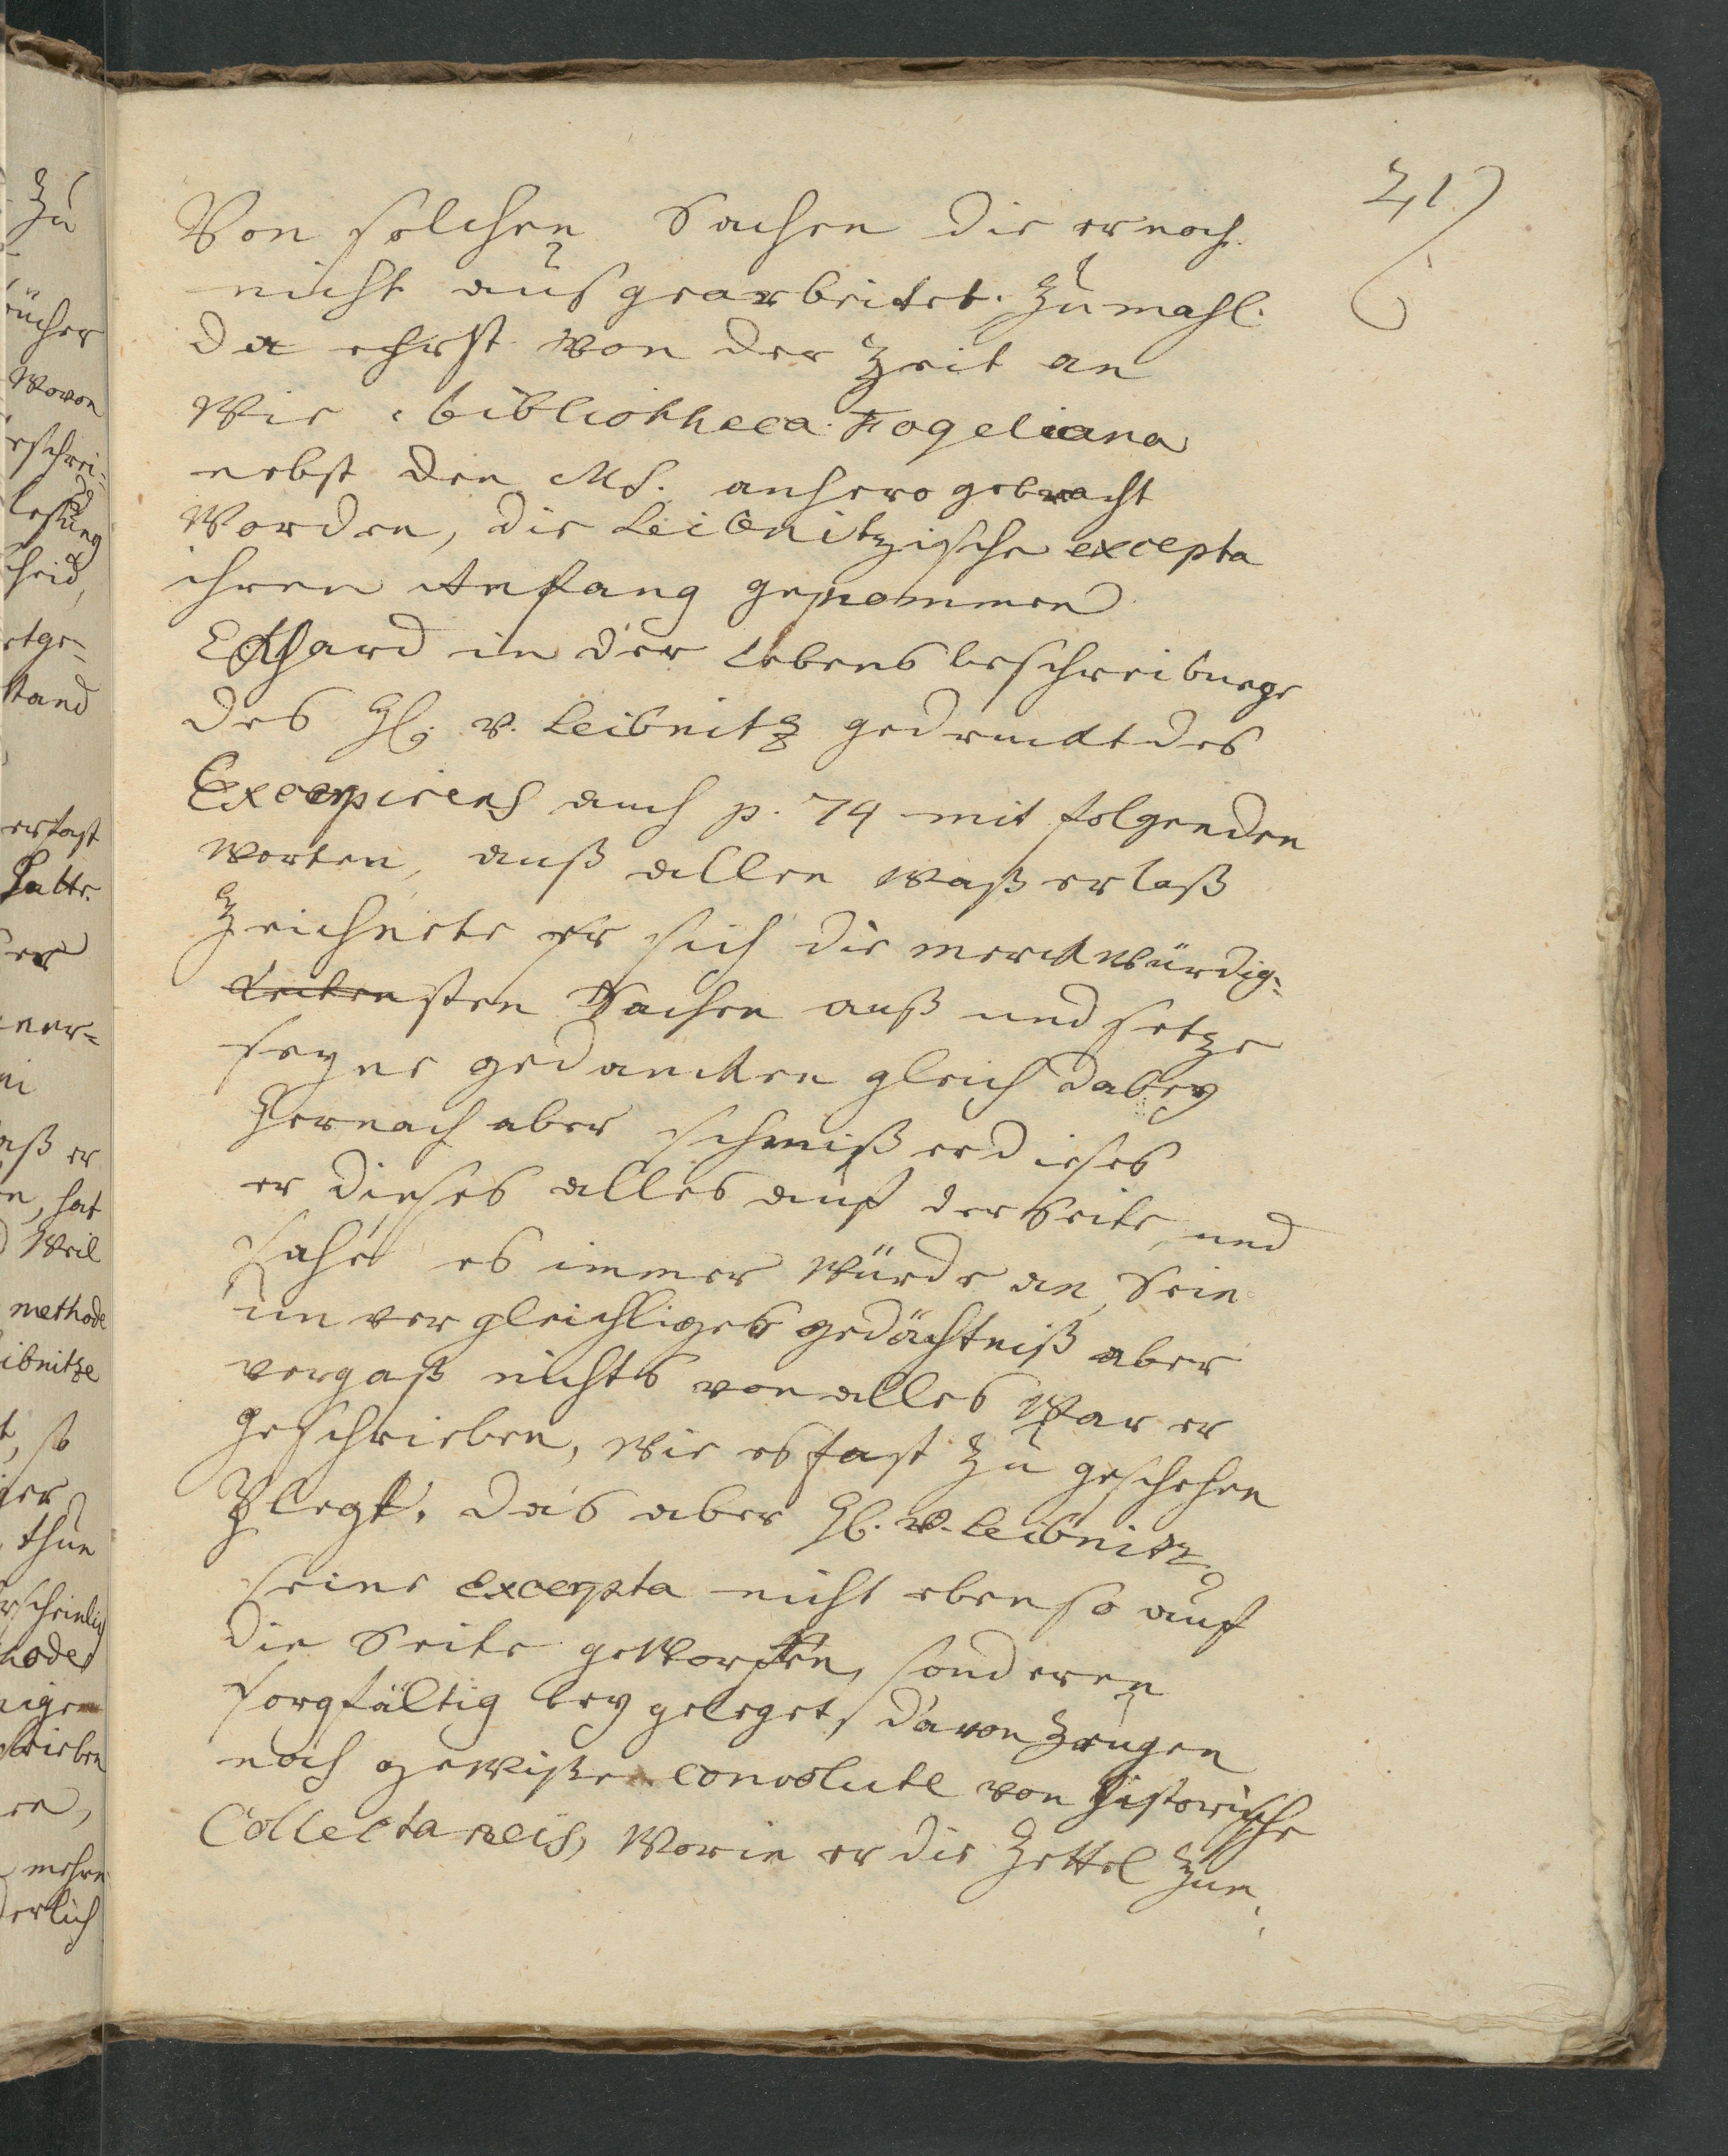 21)
Von solchen Sachen die er noch
nicht ausgearbeitet. Zumahl.
da ehrst von der Zeit an
Wie bibliotheca Fogeliana
nebst den Ms. anhero gebracht
Worden, die Leibnitzische excepta
ihren Anfang genommen
Eckhard in der Lebens beschreibunge
des H. v. Leibnitz gedenckt des
Excerpirens auch p. 74 mit folgenden
worten, auß allen waß er laß
Zeichnete er sich die merckwürdig-
sten Sachen auß und setze
seyne gedancken gleich dabey
Hernach aber schmiß er dieses
er dieses alles auf der Seite, und
sahe es immer würde an, Sein
unvergleichliges gedächtniß aber
vergaß nichts von alles War er
geschrieben, wie es fast zu geschehen
Plegt. das aber H. v. Leibnitz
seine excerpta nicht eben so auf
die Seite geworffen, sonderen
sorgfältig bey geleget, davon Zeugen
noch gewiße convolute von historische
Collectaneis, Worin er die Zettel Zun
Zu
ücher
Wovon
eschrei-
lesung
cheid,
etge-
stand
er fast
hatte.
er
ner-
aß er
n, hat
Weil
methode
ibnitze
t, so
ger
thun
rscheinlich
hode
nigen
rieben
en,
mehre
derlich